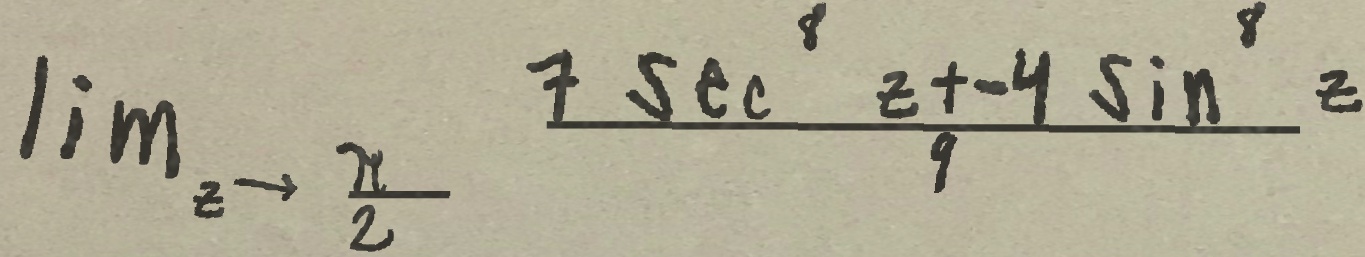 lim z → π/2 (7 sec^8 z + -4 sin^8 z)/9